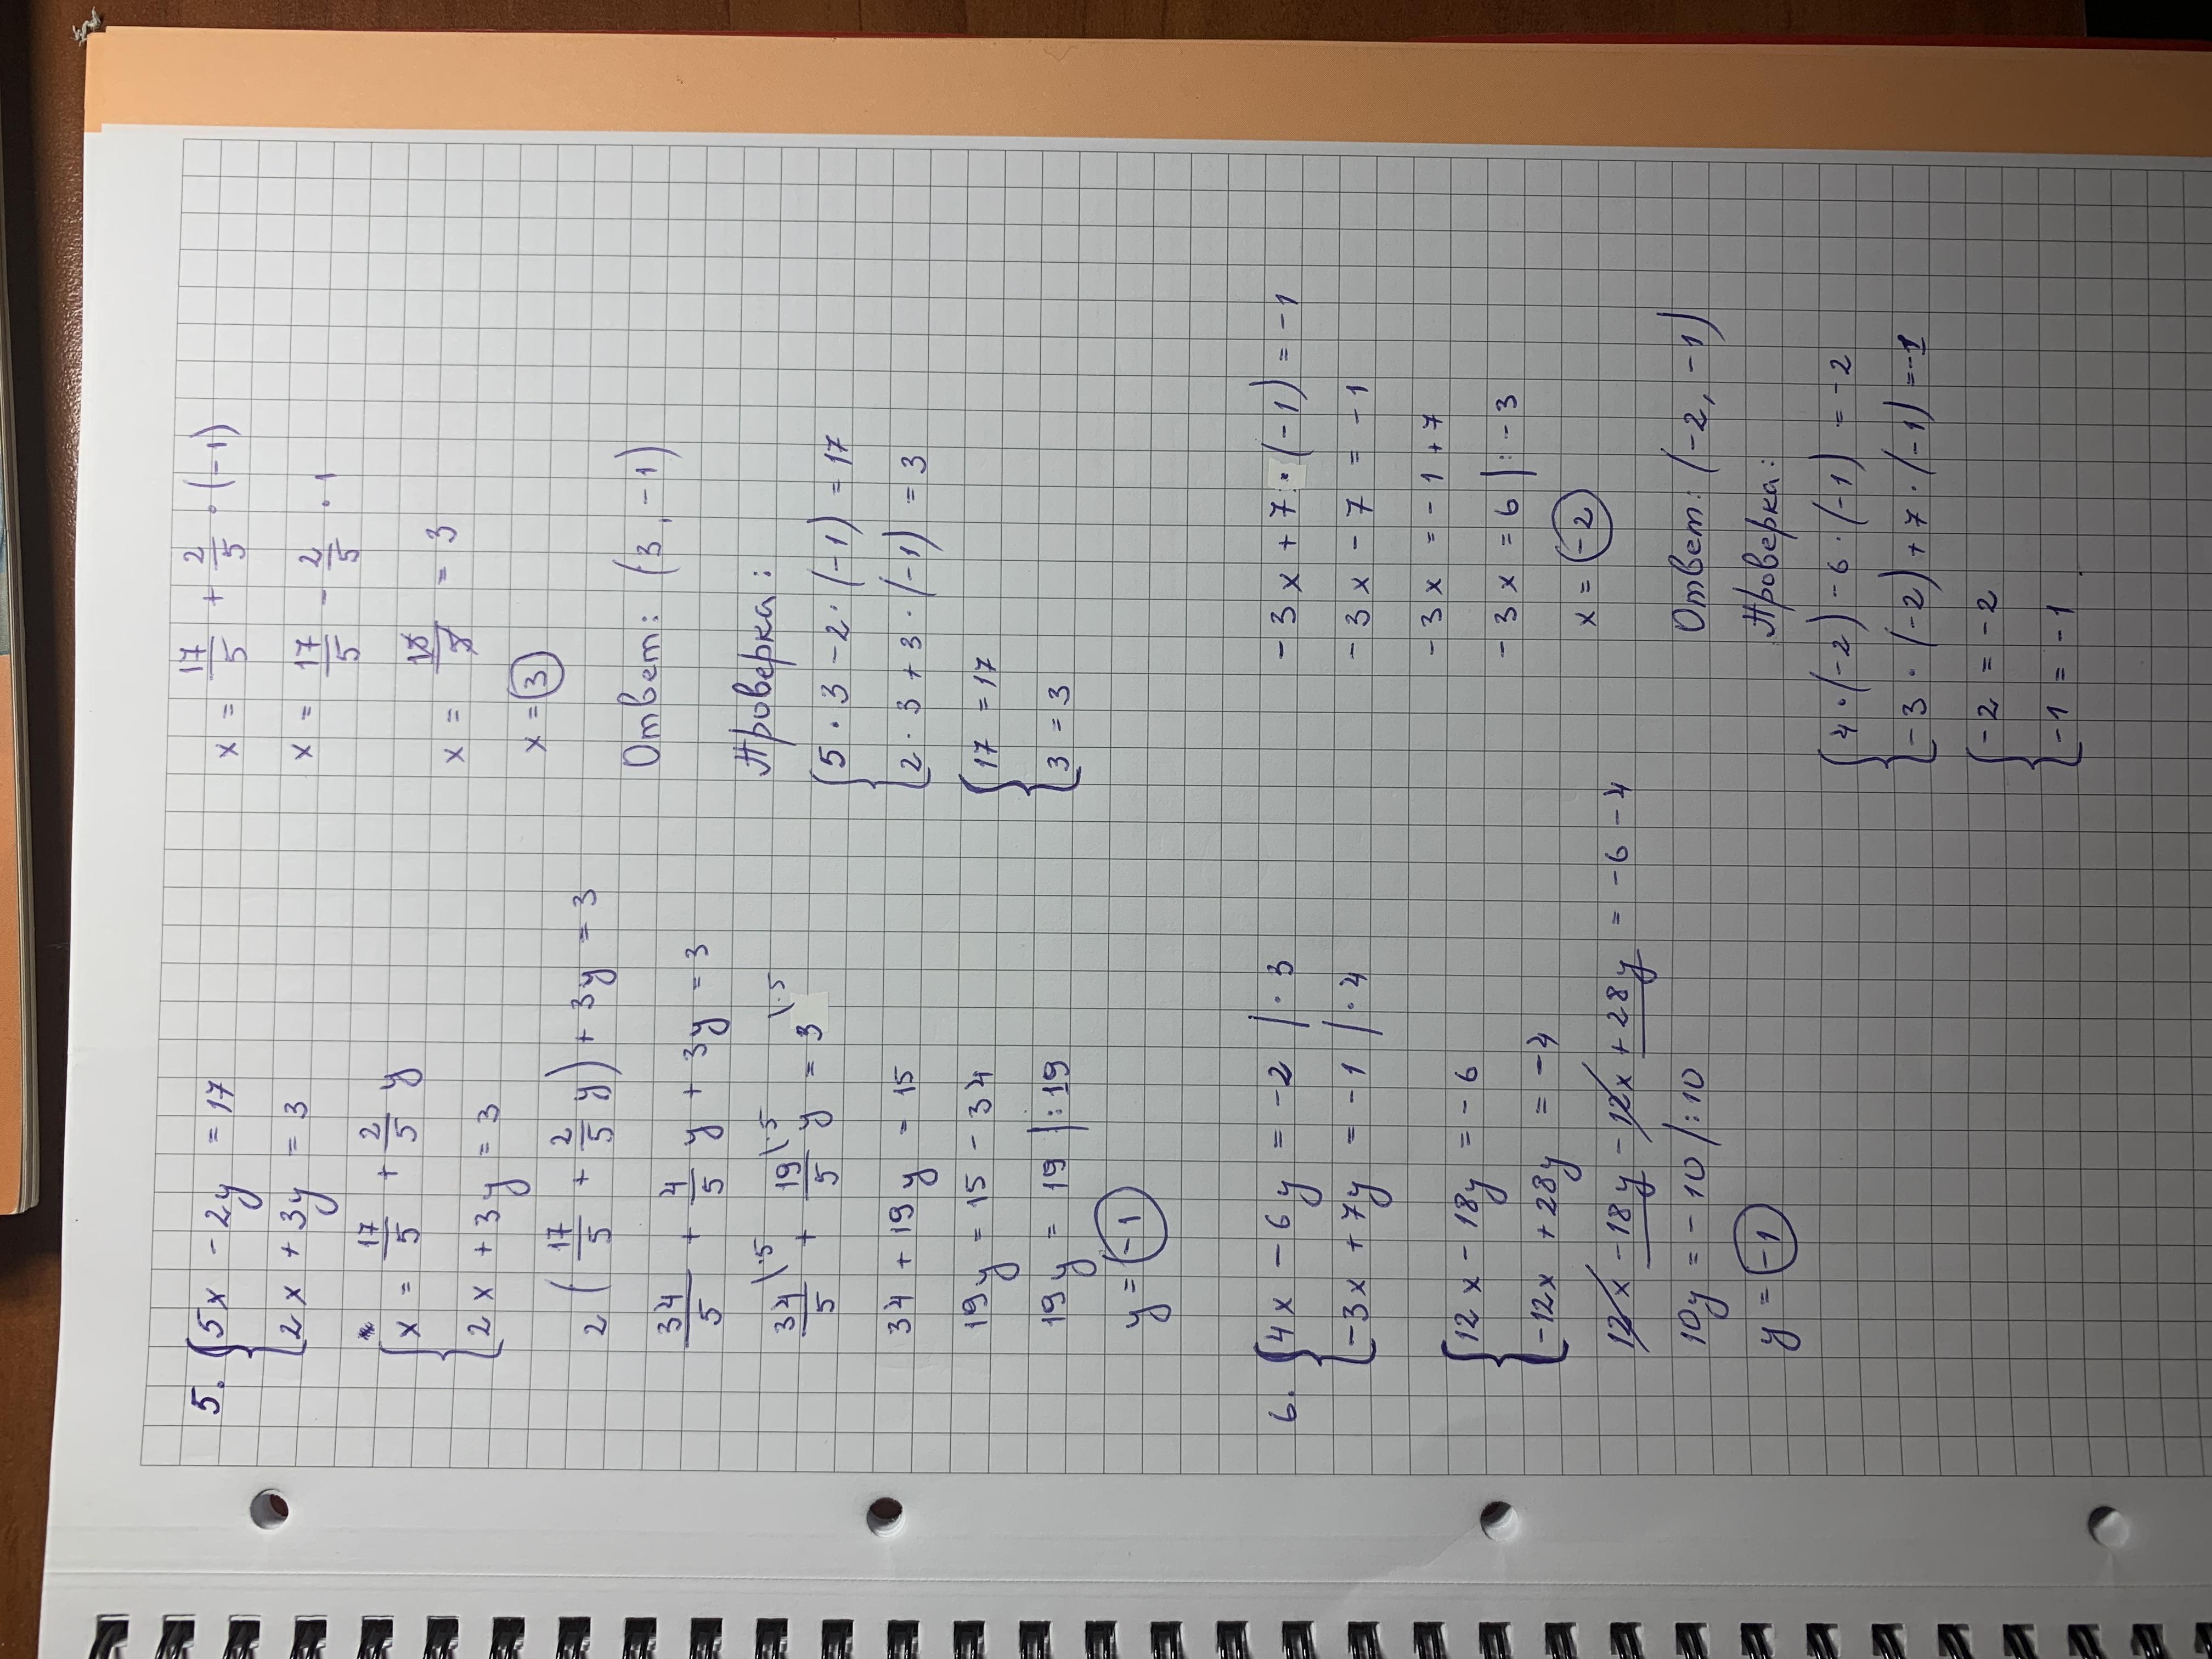 5. {5x - 2y = 17
{2x + 3y = 3
{x = 17/5 + 2/5 y
{2x + 3y = 3
2 (17/5 + 2/5 y) + 3y = 3
34/5 + 4/5 y + 3y = 3
34/5 \·5 + 19/5 \·5 y = 3 \·5
34 + 19y = 15
19y = 15 - 34
19y = 19 |:19
y = -1
x = 17/5 + 2/5 · (-1)
x = 17/5 - 2/5 · 1
x = 15/5 = 3
x = 3
Ответ: (3, -1)
Проверка:
{5 · 3 - 2 · (-1) = 17
{2 · 3 + 3 · (-1) = 3
{17 = 17
{3 = 3
6. {4x - 6y = -2 | · 3
{-3x + 7y = -1 | · 4
{12x - 18y = -6
{-12x + 28y = -4
12x - 18y - 12x + 28y = -6 - 4
10y = -10 |:10
y = -1
-3x + 7 · (-1) = -1
-3x - 7 = -1
-3x = -1 + 7
-3x = 6 |: -3
x = -2
Ответ: (-2, -1)
Проверка:
{4 · (-2) - 6 · (-1) = -2
{-3 · (-2) + 7 · (-1) = -1
{-2 = -2
{-1 = -1